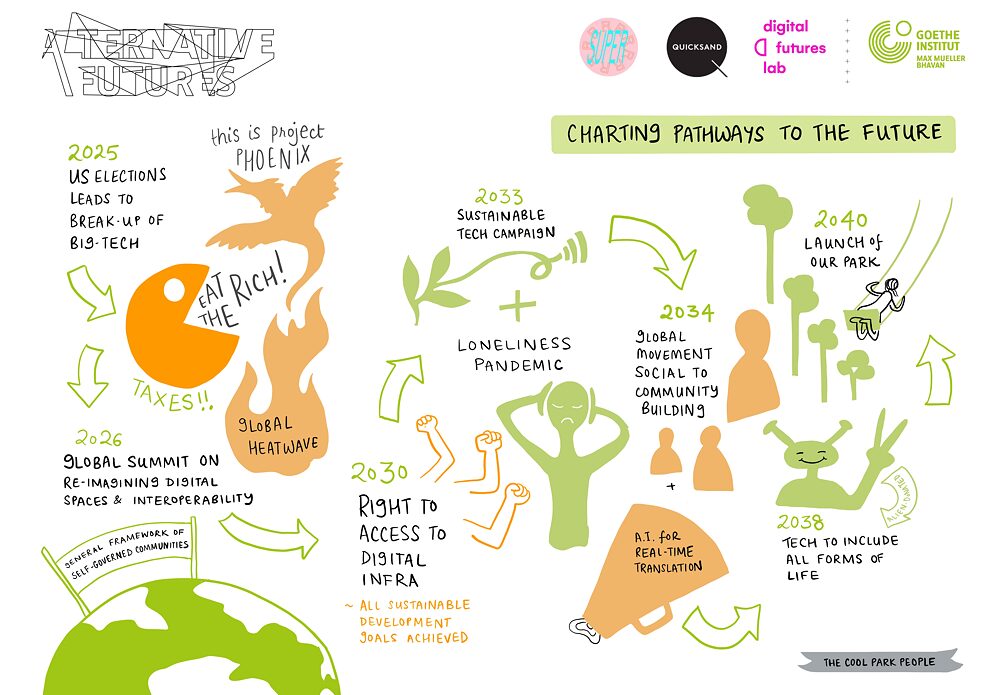 ALTERNATIVE
FUTURES
SUPER
QUICKSAND
digital
futures
lab
GOETHE
INSTITUT
MAX MUELLER
BHAVAN
CHARTING PATHWAYS TO THE FUTURE
2025
US ELECTIONS
LEADS TO
BREAK-UP OF
BIG-TECH
this is project
PHOENIX
EAT
THE RICH!
TAXES!!
GLOBAL
HEATWAVE
2026
GLOBAL SUMMIT ON
RE-IMAGINING DIGITAL
SPACES & INTEROPERABILITY
GENERAL FRAMEWORK OF
SELF-GOVERNED COMMUNITIES
2030
RIGHT TO
ACCESS TO
DIGITAL
INFRA
~ ALL SUSTAINABLE
DEVELOPMENT
GOALS ACHIEVED
2033
SUSTAINABLE
TECH CAMPAIGN
+
LONELINESS
PANDEMIC
2034
GLOBAL
MOVEMENT
SOCIAL TO
COMMUNITY
BUILDING
+
A.I. FOR
REAL-TIME
TRANSLATION
2038
TECH TO INCLUDE
ALL FORMS OF
LIFE
2040
LAUNCH OF
OUR PARK
THE COOL PARK PEOPLE